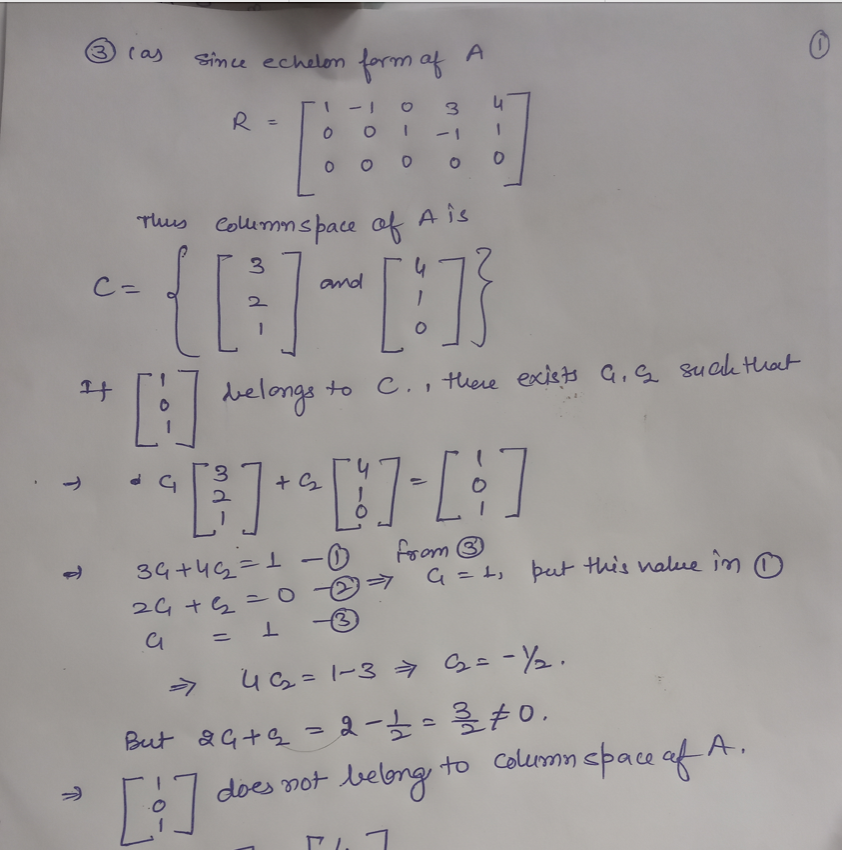 ①
③ (a) Since echelon form of A
R = [1 -1 0 3 4
0 0 1 -1 1
0 0 0 0 0]
Thus columnspace of A is
C = { [3 2 1] and [4 1 0] }
If [1 0 1] belongs to C., there exists C₁, C₂ such that
→ C₁ [3 2 1] + C₂ [4 1 0] = [1 0 1]
⇒ 3C₁ + 4C₂ = 1 — ① from ③
2C₁ + C₂ = 0 — ② ⇒ C₁ = 1, put this value in ①
C₁ = 1 — ③
⇒ 4C₂ = 1-3 ⇒ C₂ = -1/2.
But 2C₁ + C₂ = 2 - 1/2 = 3/2 ≠ 0.
⇒ [1 0 1] does not belong to column space of A.